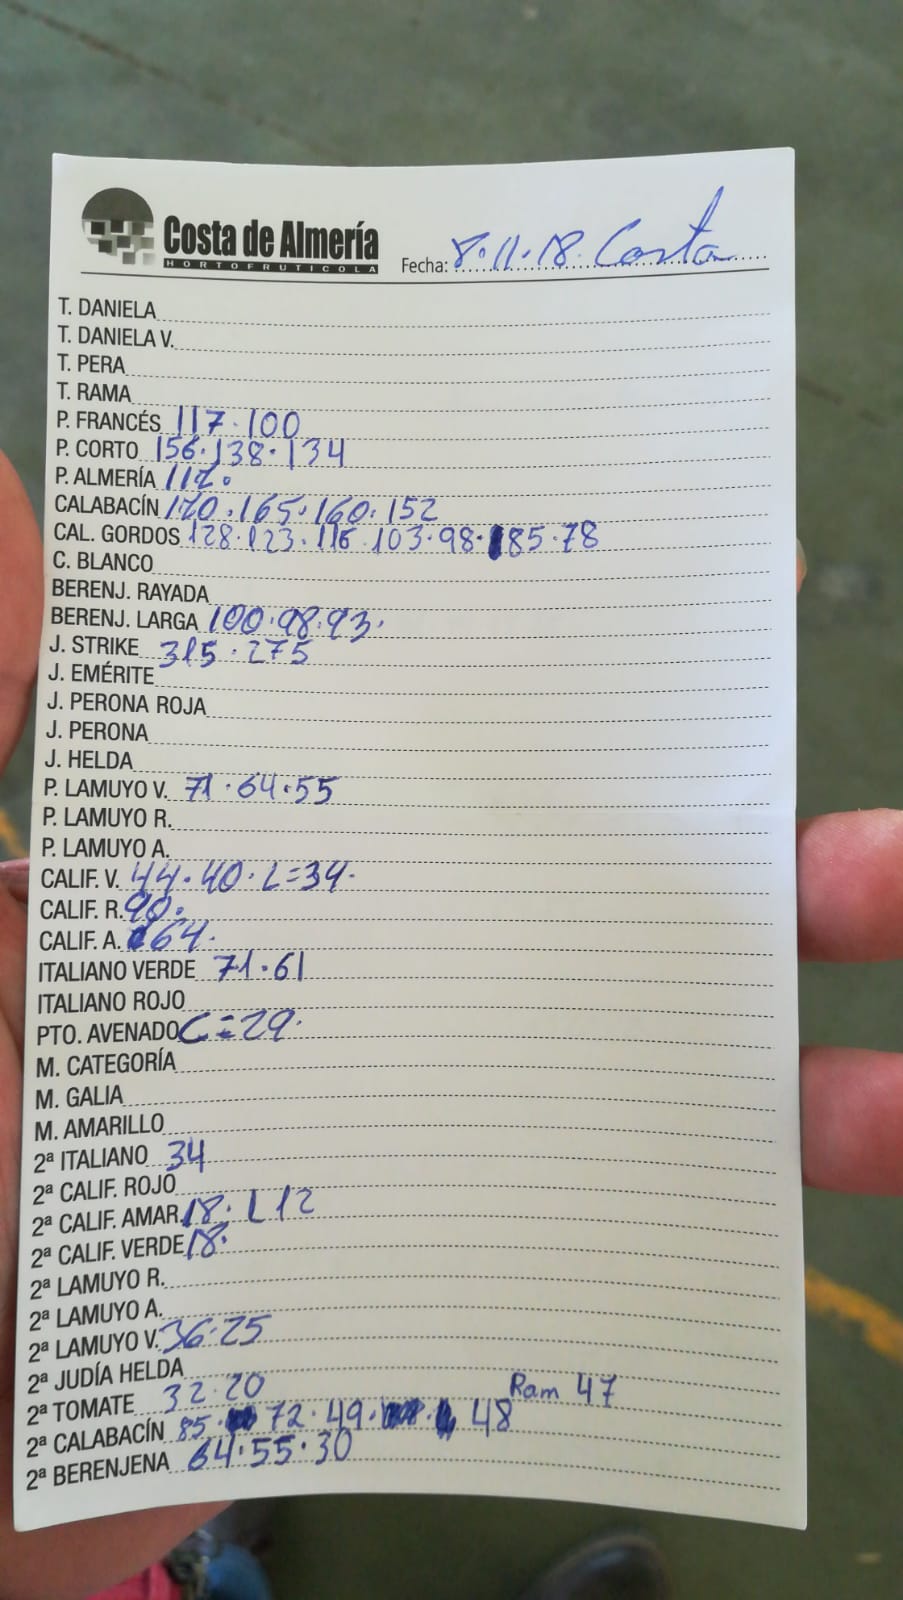 Costa de Almería
HORTOFRUTICOLA
Fecha: 8.11.18. Costa
T. DANIELA
T. DANIELA V.
T. PERA
T. RAMA
P. FRANCÉS 117.100
P. CORTO 156.138.134
P. ALMERÍA 117.
CALABACÍN 170.165.160.152
CAL. GORDOS 128.123.116.103.98.85.78
C. BLANCO
BERENJ. RAYADA
BERENJ. LARGA 100.98.93.
J. STRIKE 315.275
J. EMÉRITE
J. PERONA ROJA
J. PERONA
J. HELDA
P. LAMUYO V. 71.64.55
P. LAMUYO R.
P. LAMUYO A.
CALIF. V. 44.40.L=34.
CALIF. R. 90.
CALIF. A. 64.
ITALIANO VERDE 71.61
ITALIANO ROJO
PTO. AVENADO C=29.
M. CATEGORÍA
M. GALIA
M. AMARILLO
2ª ITALIANO 34
2ª CALIF. ROJO
2ª CALIF. AMAR. 18. L 12
2ª CALIF. VERDE 18.
2ª LAMUYO R.
2ª LAMUYO A.
2ª LAMUYO V. 36.25
2ª JUDÍA HELDA
2ª TOMATE 32.20 Ram 47
2ª CALABACÍN 85. 72.49. 48
2ª BERENJENA 64.55.30